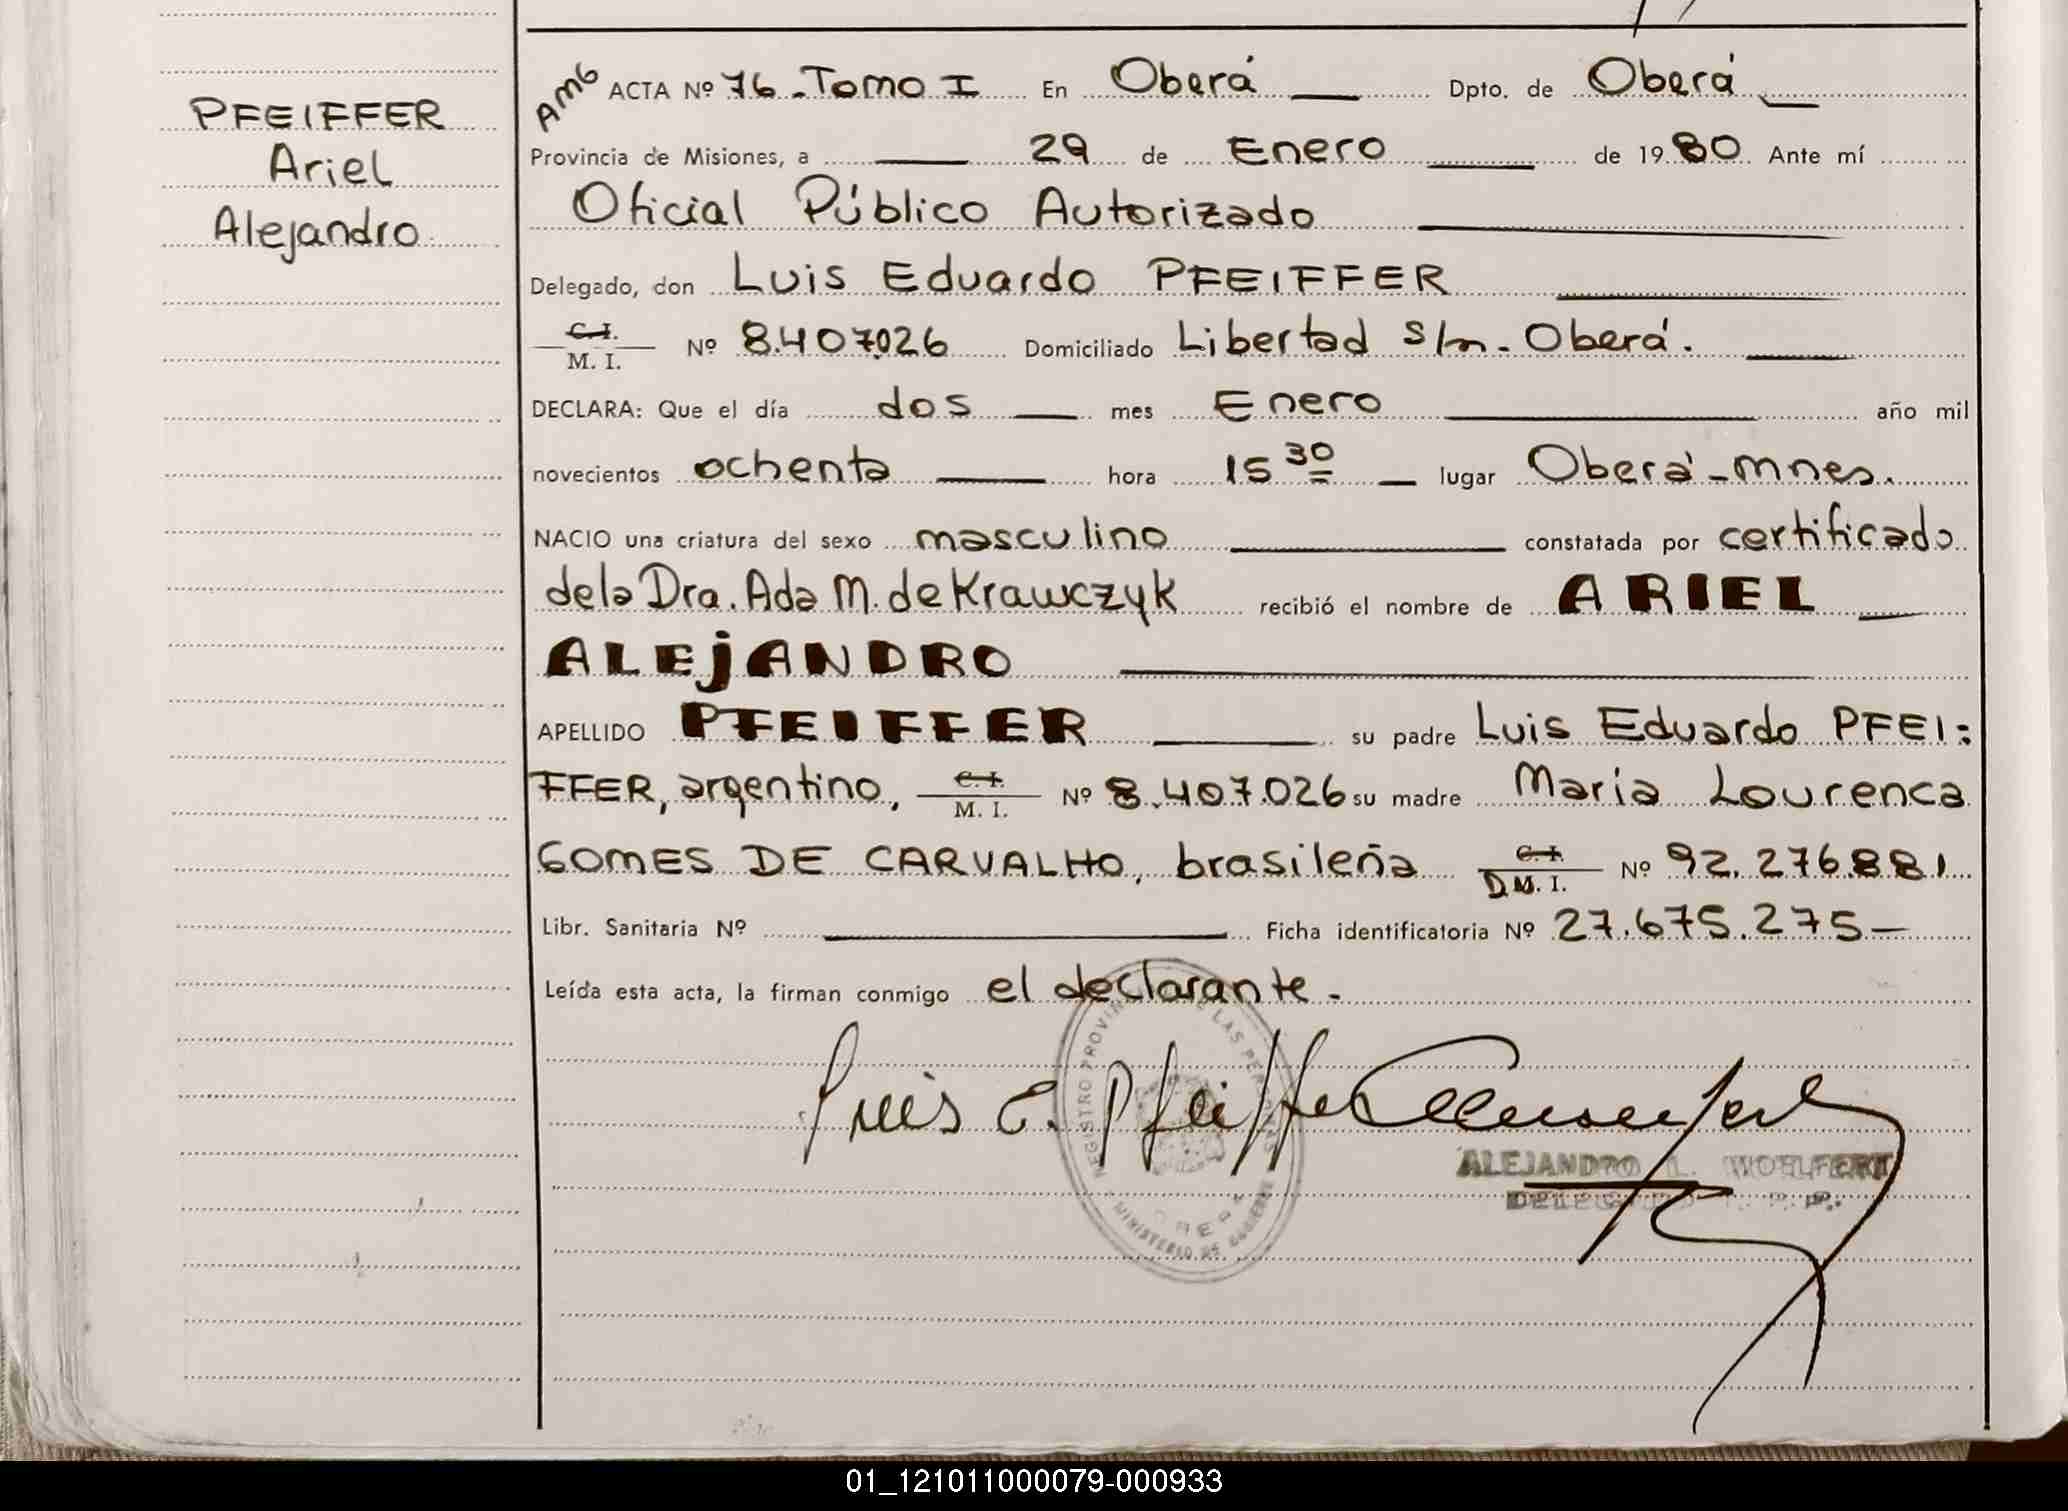 PFEIFFER
Ariel
Alejandro
AMG ACTA Nº 76.-Tomo I En Oberá Dpto. de Oberá
Provincia de Misiones, a 29 de Enero de 1980 Ante mí
Oficial Público Autorizado
Delegado, don Luis Eduardo PFEIFFER
C.I. M. I. Nº 8.407.026 Domiciliado Libertad s/n.- Oberá.
DECLARA: Que el día dos mes Enero año mil
novecientos ochenta hora 15 30 lugar Oberá-mnes.
NACIO una criatura del sexo masculino constatada por certificado
de la Dra. Ada M. de Krawczyk recibió el nombre de ARIEL
ALEjANDRO
APELLIDO PFEIFFER su padre Luis Eduardo PFEI:
FFER, argentino, C.I. M. I. Nº 8.407.026 su madre Maria Lourenca
GOMES DE CARVALHO, brasileña C.I. D.N.I. Nº 92.276.881
Libr. Sanitaria Nº Ficha identificatoria Nº 27.675.275-
Leída esta acta, la firman conmigo el declarante.-
Luis E. Pfeiffer
REGISTRO PROVIN LAS PER
OBERA
MINISTERIO DE GOBIERNO
ALEJANDRO L. WOELFERT
DELEGADO
01_121011000079-000933